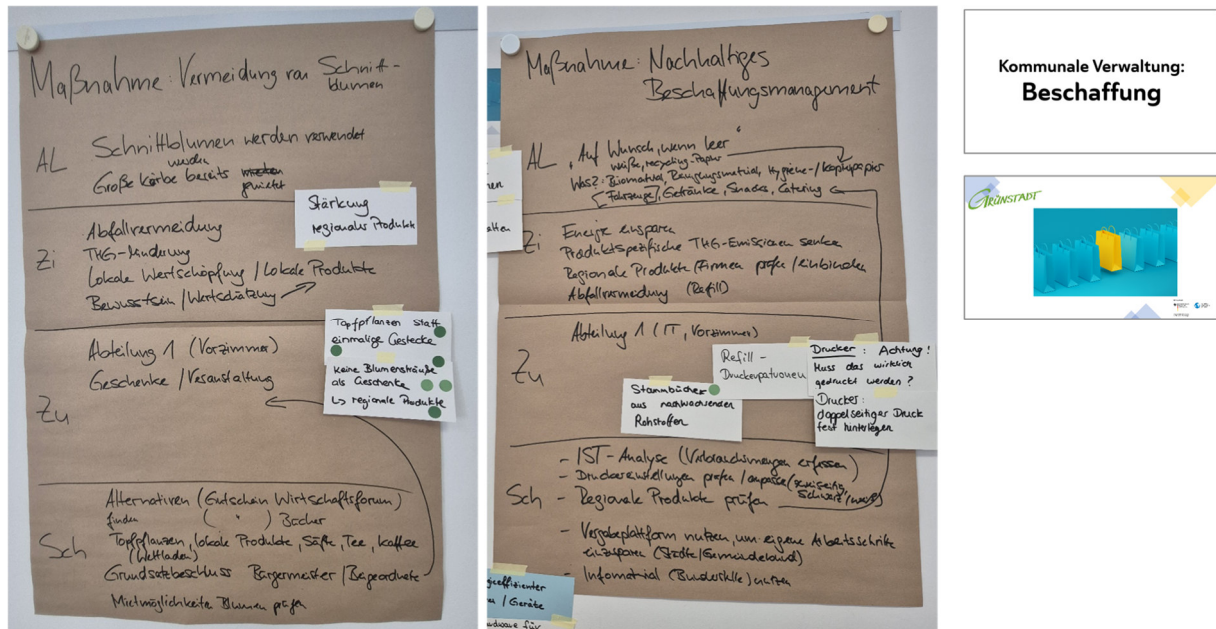 Maßnahme: Vermeidung von Schnitt-
blumen
AL
Schnittblumen werden verwendet
werden
Große Körbe bereits gemietet
Stärkung
regionaler Produkte
Zi
Abfallvermeidung
THG-Minderung
Lokale Wertschöpfung / Lokale Produkte
Bewusstsein / Wertschätzung
Topfpflanzen statt
einmalige Gestecke
Keine Blumensträuße
als Geschenke
↳ regionale Produkte
Zu
Abteilung 1 (Vorzimmer)
Geschenke / Veranstaltung
Sch
Alternativen (Gutschein Wirtschaftsforum)
finden ( " ) Bücher
Topfpflanzen, lokale Produkte, Säfte, Tee, Kaffee
(Weltladen)
Grundsatzbeschluss Bürgermeister / Beigeordnete
Mietmöglichkeiten Blumen prüfen
Maßnahme: Nachhaltiges
Beschaffungsmanagement
AL
„Auf Wunsch, wenn leer"
weiße, recycling-Papier
Was?: Büromaterial, Reinigungsmaterial, Hygiene-/Kopierpapier
(Fahrzeuge), Getränke, Snacks, Catering
Zi
Energie einsparen
Produktspezifische THG-Emissionen senken
Regionale Produkte/Firmen prüfen/einbinden
Abfallvermeidung (Refill)
Zu
Abteilung 1 (IT, Vorzimmer)
Refill -
Druckerpatronen
Drucker: Achtung!
Muss das wirklich
gedruckt werden?
Drucker:
doppelseitiger Druck
fest hinterlegen
Stammbücher
aus nachwachsenden
Rohstoffen
Sch
- IST-Analyse (Verbrauchsmengen erfassen)
- Druckereinstellungen prüfen/anpassen (zweiseitig,
schwarz/weiß)
- Regionale Produkte prüfen
- Vergabeplattform nutzen, um eigene Arbeitsschritte
einzusparen (Städte/Gemeindebund)
- Infomaterial nutzen
/ Geräte
für
Kommunale Verwaltung:
Beschaffung
GRÜNSTADT